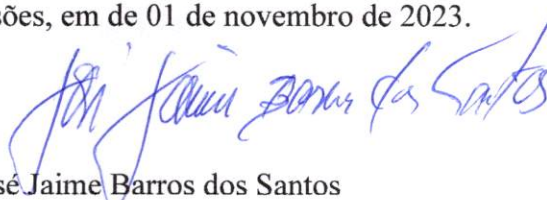 sões, em de 01 de novembro de 2023.
José Jaime Barros dos Santos
sé Jaime Barros dos Santos